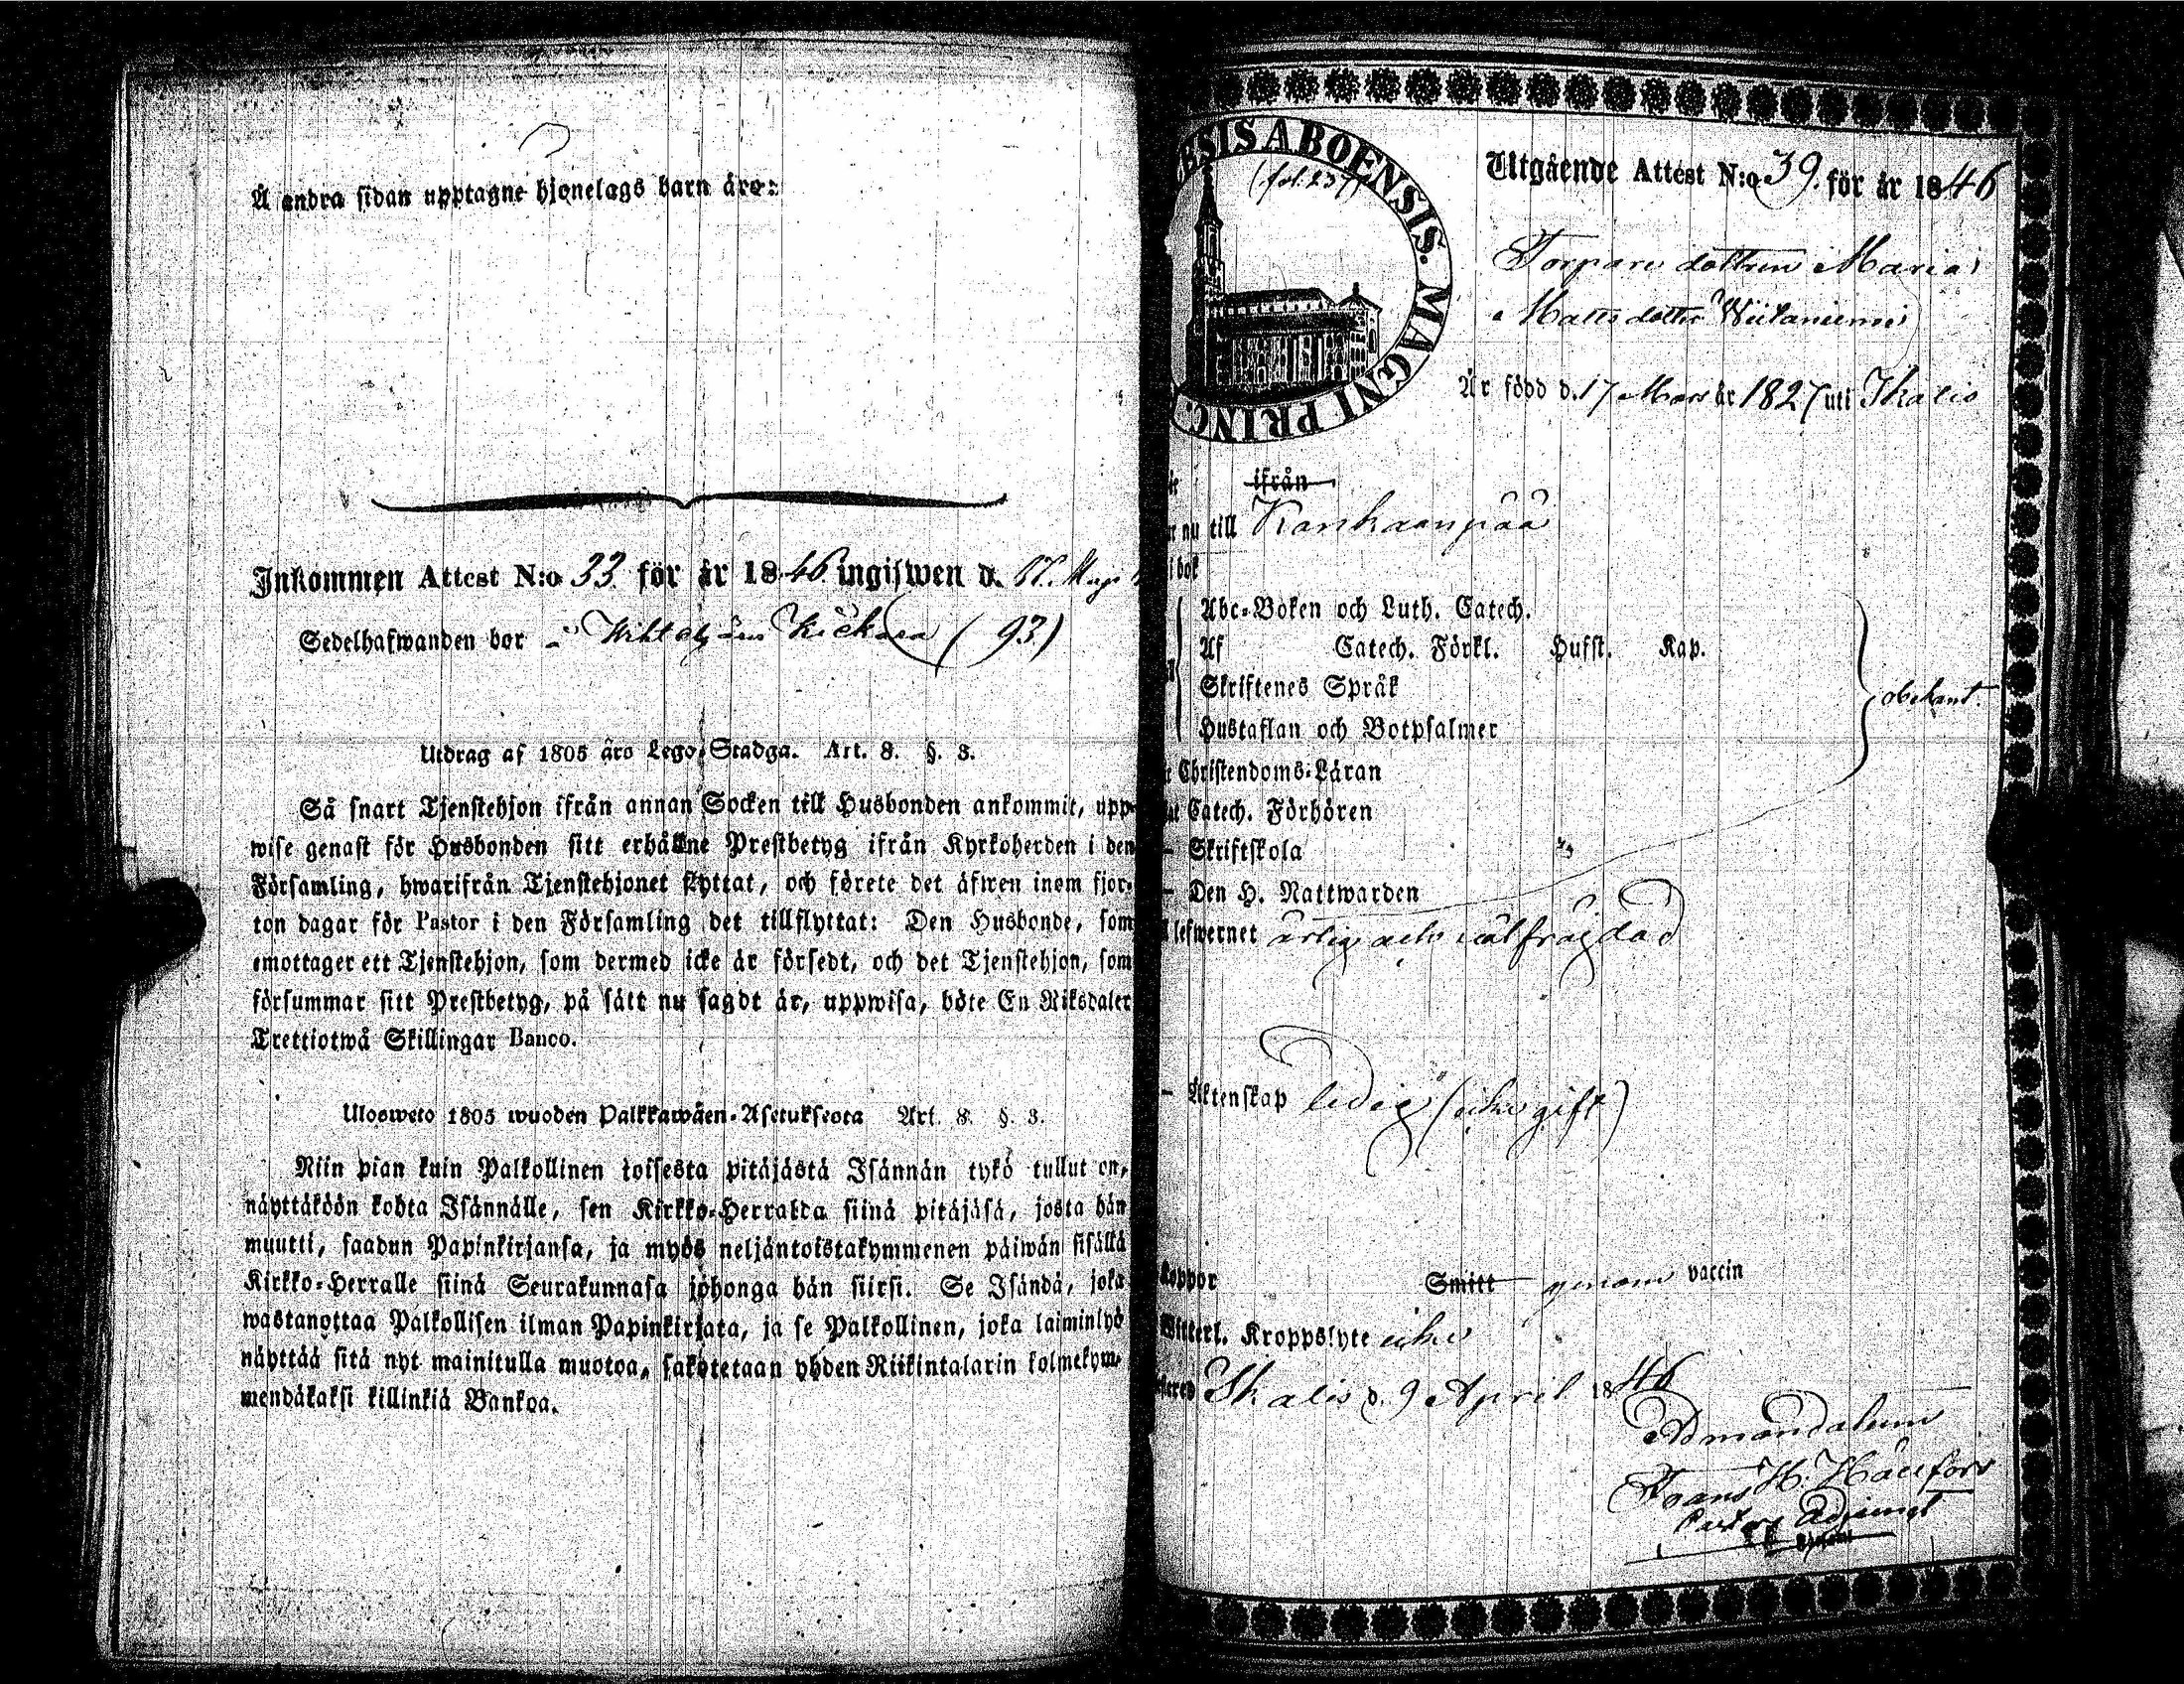 Å andra sidan upptagne hjonelags barn äro:
Inkommen Attest N:o 33 för år 1846 ingifwen d.
Sedelhafwanden bor (93)
Utdrag af 1805 års Lego-Stadga. Art. 8. §. 3.
Så snart Tjenstehjon ifrån annan Socken till Husbonden ankommit, upp-
wise genast för Husbonden sitt erhållne Prestbetyg ifrån Kyrkoherden i den
Församling, hwarifrån Tjenstehjonet flyttat, och förete det äfwen inom fjor-
ton dagar för Pastor i den Församling det tillflyttat: Den Husbonde, som
emottager ett Tjenstehjon, som dermed icke är försedt, och det Tjenstehjon, som
försummar sitt Prestbetyg, på sätt nu sagdt är, uppwisa, böte En Riksdaler
Trettiotwå Skillingar Banco.
Ulosweto 1805 wuoden Palkkawäen-Asetuksesta Art. 8. §. 3.
Niin pian kuin Palkollinen toisesta pitäjästä Isännän tykö tullut on,
näyttäköön kohta Isännälle, sen Kirkko-Herralda siinä pitäjäsä, josta hän
muutti, saadun Papinkirjansa, ja myös neljäntoistakymmenen päiwän sisällä
Kirkko-Herralle siinä Seurakunnasa johonga hän siirsi. Se Isändä, joka
wastanottaa Palkollisen ilman Papinkirjata, ja se Palkollinen, joka laiminlyö
näyttää sitä nyt mainitulla muotoa, sakotetaan yhden Riikintalarin kolmekym-
mendäkaksi killinkiä Bankoa.
SIS ABOENSIS. MAGNI PRINC.
Utgående Attest N:o 39. för år 1846
Torpare dottren Maria
Matts dotter Wiitaniemi
Är född d. 17 Mars år 1827 uti Ikalis
ifrån
nu till Kankaanpää
i bok
Abc-Boken och Luth. Catech.
Af Catech. Förkl. Hufst. Kap.
Skriftenes Språk
Hustaflan och Botpsalmer
obekant.
Christendoms-Läran
Catech. Förhören
– Skriftskola
– Den H. Nattwarden
lefwernet ärlig och välfrägdad
– Äktenskap ledig (icke gift)
koppor Smitt genom vaccin
Witterl. Kroppslyte icke
Ikalis d. 9 April 1846
Admandatum
Frans H. Hällfors
Pastors Adjunct